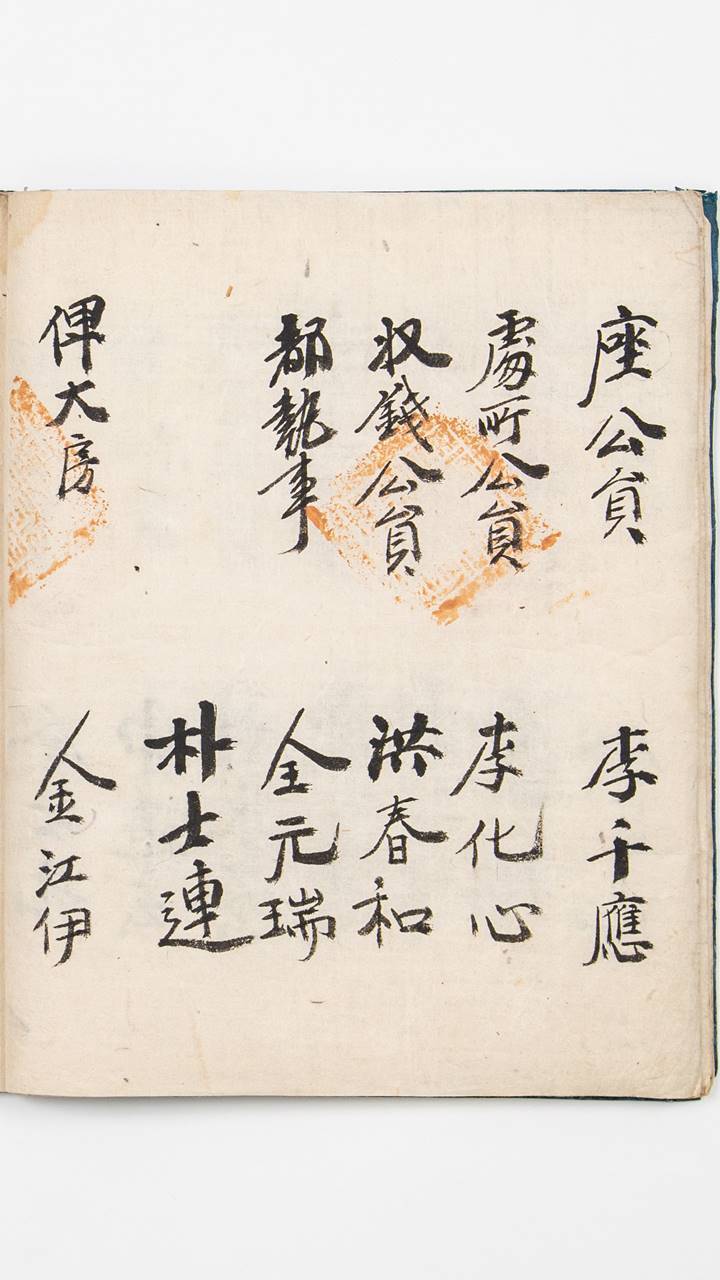 座公員 李千應
處所公員 李化心
収錢公員 洪春和
都執事 全元瑞
朴士連
俾大房 金江伊